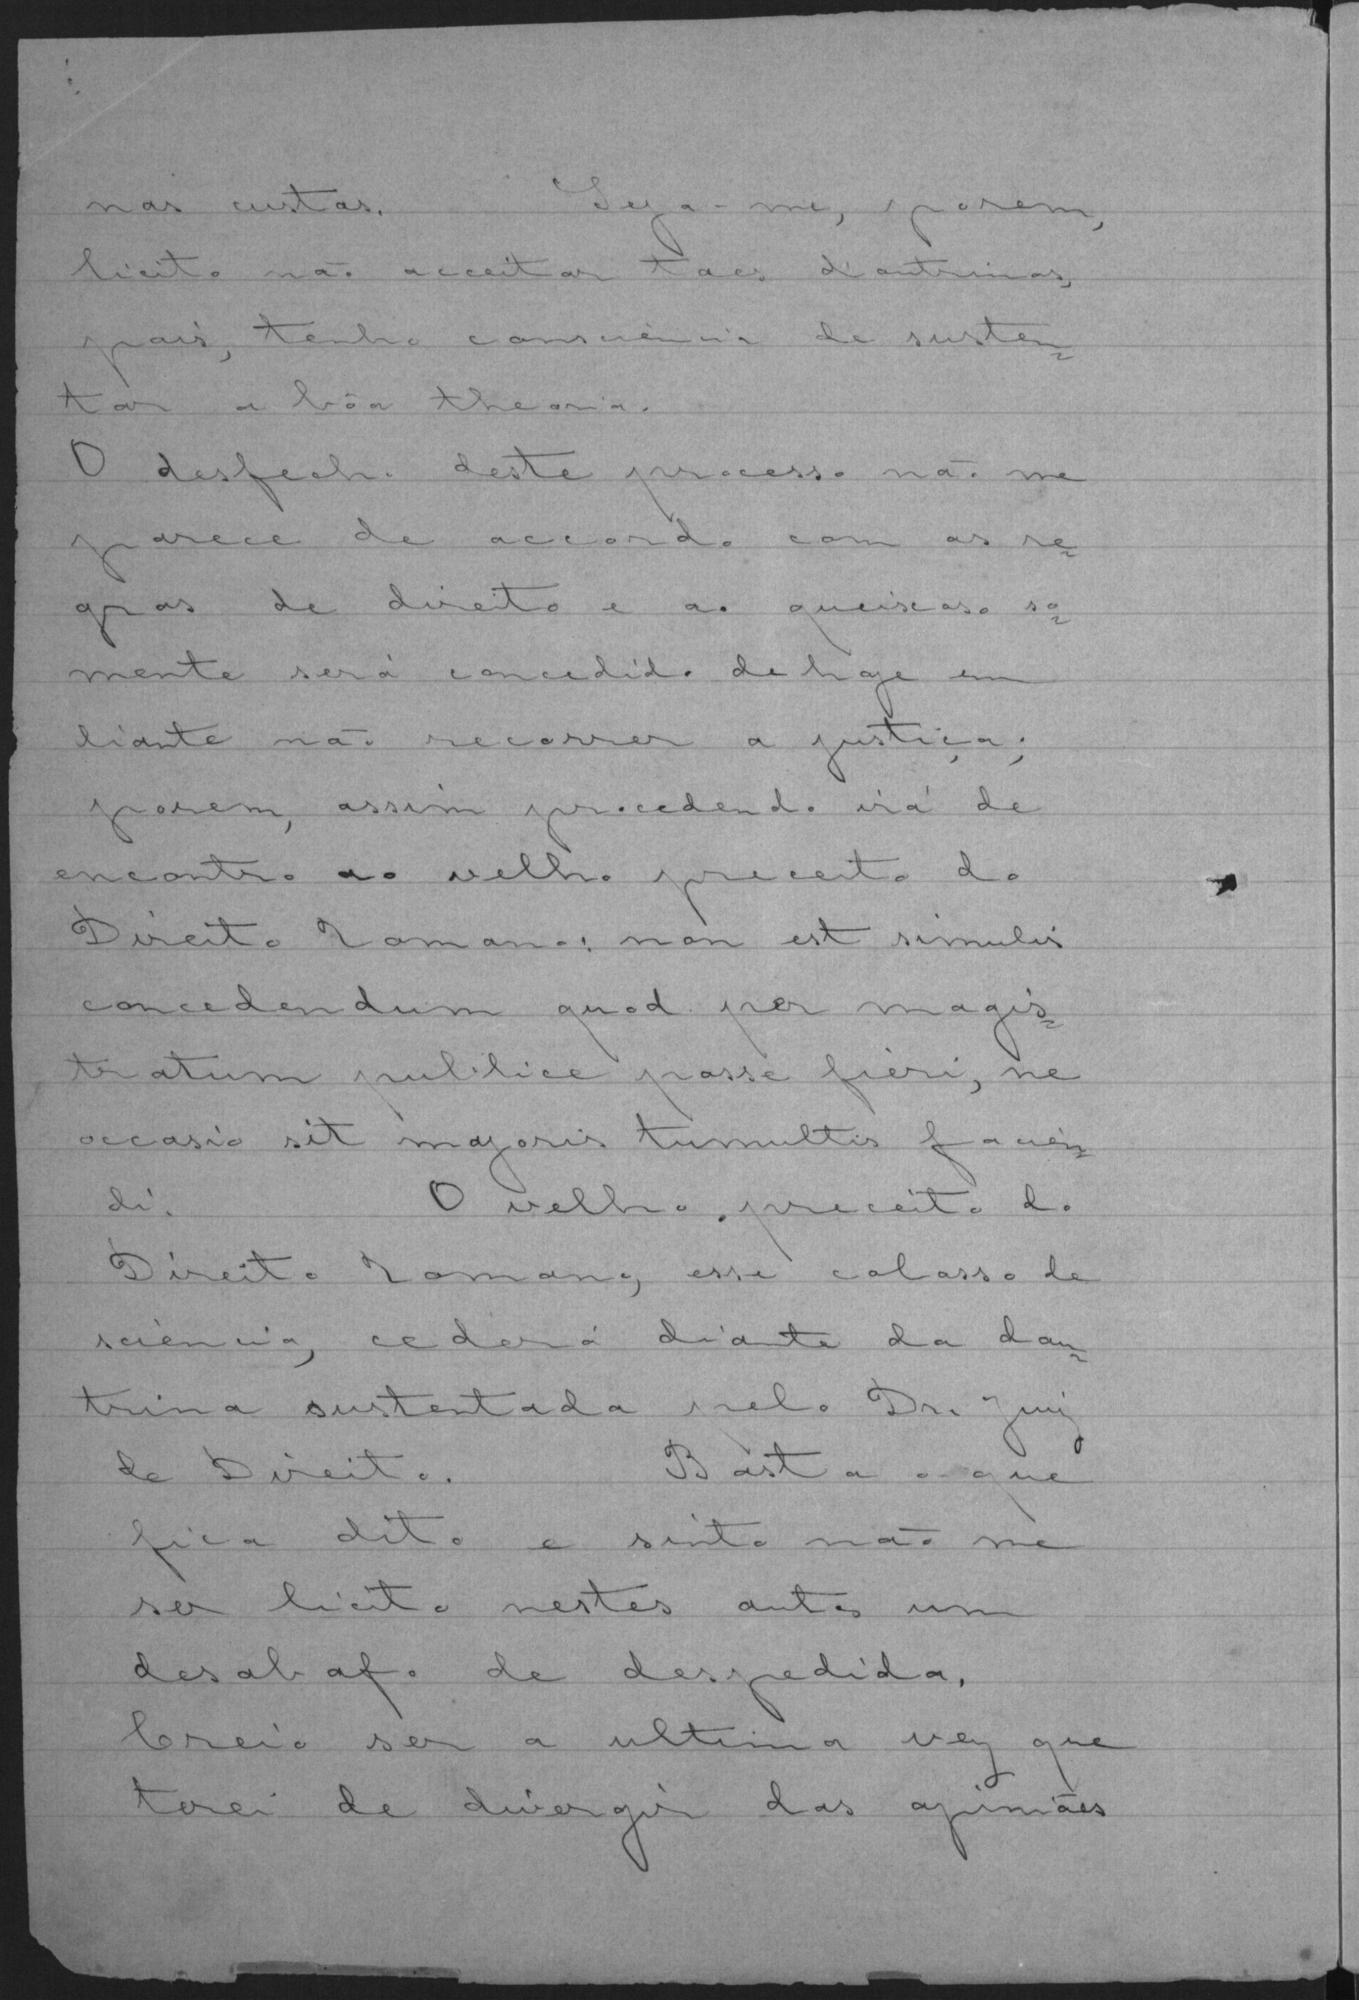 nas custas. Seja-me, porem,
licito não acceitar taes doutrinas,
pois, tenho consciencia de susten=
tar a bôa theoria.
O desfecho deste processo não me
parece de accordo com as re=
gras de direito e ao queixoso so=
mente será concedido de hoje em
diante não recorrer a justiça;
porem, assim procedendo irá de
encontro ao velho preceito do
Direito Romano: non est simulis
concedendum quod per magis=
tratum publice posse fieri, ne
occasio sit majoris tumultis facien=
di. O velho preceito do
Direito Romano, esse colosso de
sciencia, cederá diante da dou=
trina sustentada pelo Dr. Juiz
de Direito. Basta o que
fica dito e sinto não me
ser licito nestes autos um
desabafo de despedida.
Creio ser a ultima vez que
terei de divergir das opiniões